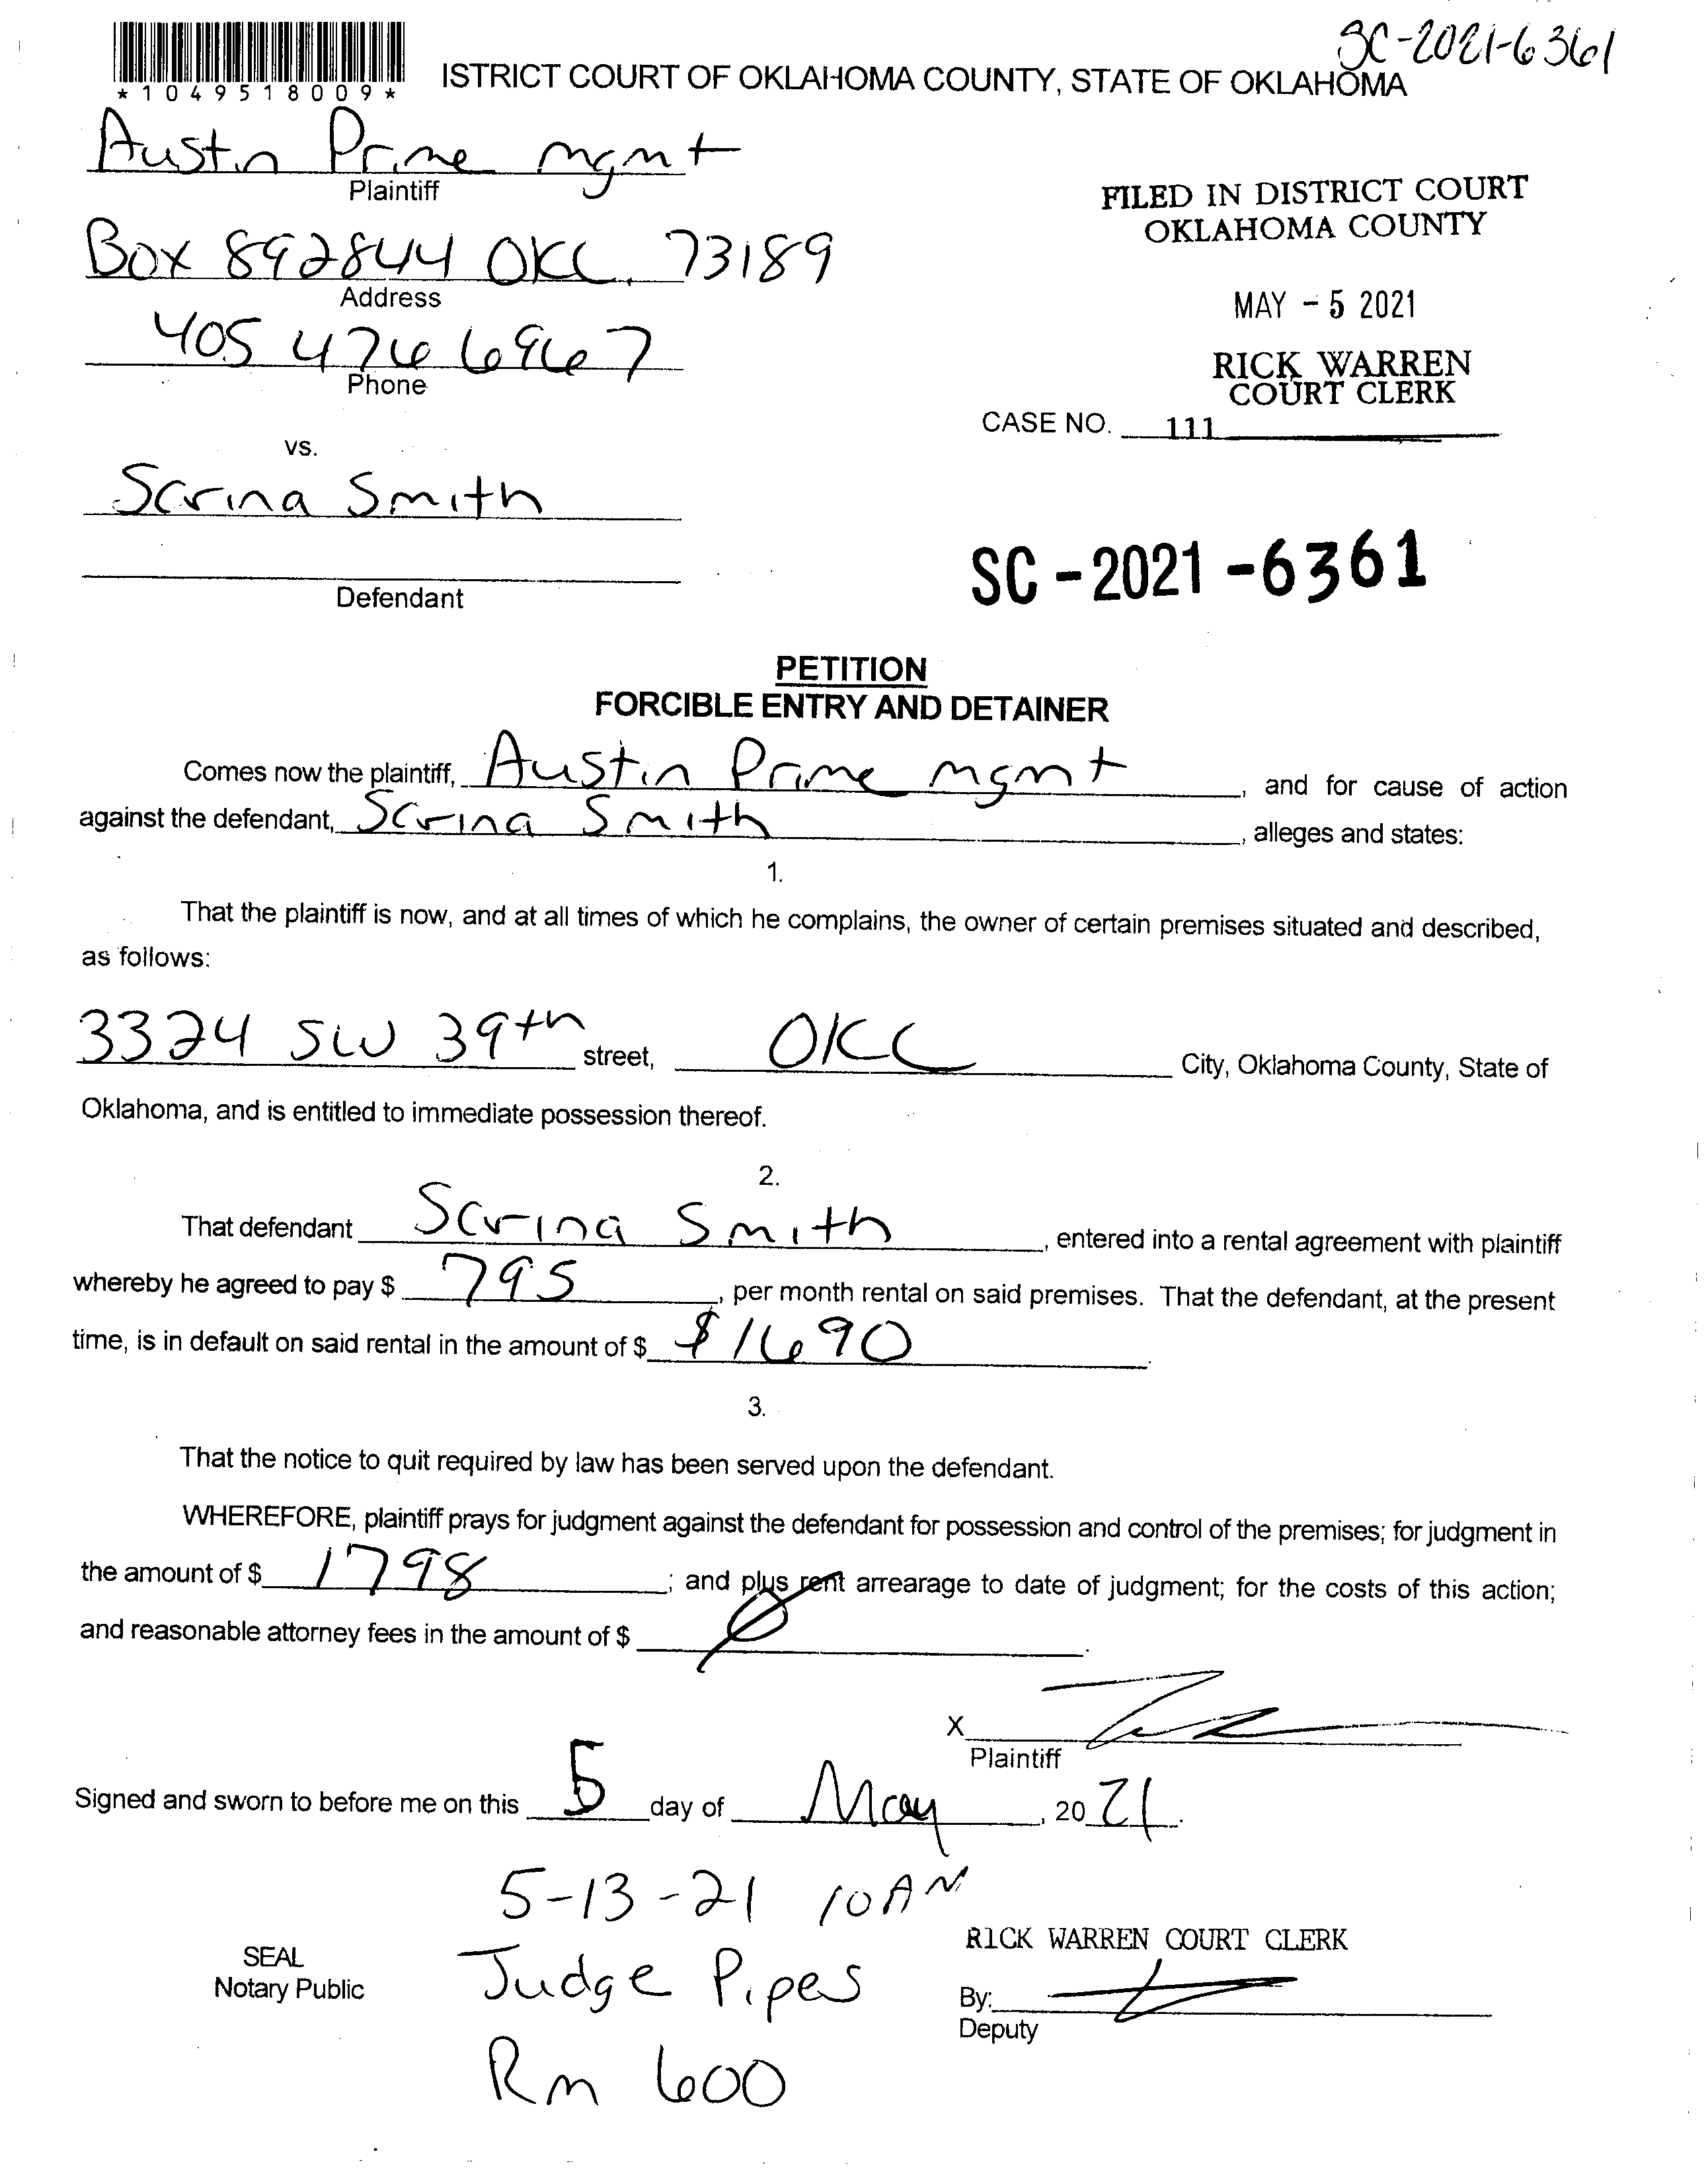 SC-2021-6361
*1049518009*
ISTRICT COURT OF OKLAHOMA COUNTY, STATE OF OKLAHOMA
Austin Prime mgmt
Plaintiff
FILED IN DISTRICT COURT
OKLAHOMA COUNTY
Box 892844 OKC, 73189
Address
MAY - 5 2021
405 476 6967
Phone
RICK WARREN
COURT CLERK
CASE NO. 111
vs.
Scrina Smith
Defendant
SC - 2021 - 6361
PETITION
FORCIBLE ENTRY AND DETAINER
Comes now the plaintiff, Austin Prime mgmt, and for cause of action
against the defendant, Scrina Smith, alleges and states:
1.
That the plaintiff is now, and at all times of which he complains, the owner of certain premises situated and described,
as follows:
3324 SW 39th street, OKC City, Oklahoma County, State of
Oklahoma, and is entitled to immediate possession thereof.
2.
That defendant Scrina Smith, entered into a rental agreement with plaintiff
whereby he agreed to pay $ 795, per month rental on said premises. That the defendant, at the present
time, is in default on said rental in the amount of $ $1690.
3.
That the notice to quit required by law has been served upon the defendant.
WHEREFORE, plaintiff prays for judgment against the defendant for possession and control of the premises; for judgment in
the amount of $ 1798; and plus rent arrearage to date of judgment; for the costs of this action;
and reasonable attorney fees in the amount of $ Ø.
X
Plaintiff
Signed and sworn to before me on this 5 day of May, 2021.
5-13-21 10AM
RICK WARREN COURT CLERK
SEAL
Notary Public
Judge Pipes
By:
Deputy
Rm 600